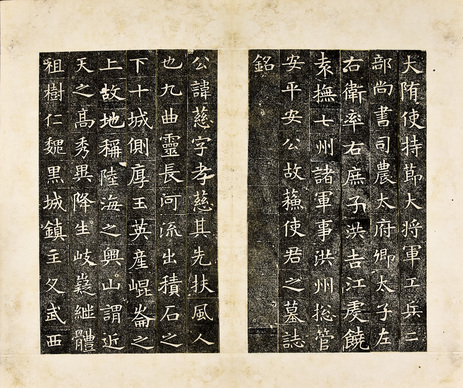 大隋使持節大將軍工兵二
部尚書司農太府卿太子左
右衛率右庶子洪吉江虔饒
袁撫七州諸軍事洪州揔管
安平安公故蘓使君之墓誌
銘
公諱慈字孝慈其先扶風人
也九曲靈長河流出積石之
下十城側厚玉英産崐崙之
上故地稱陸海之奧山謂近
天之髙秀異降生岐嶷繼體
祖樹仁魏黑城鎮主父武西